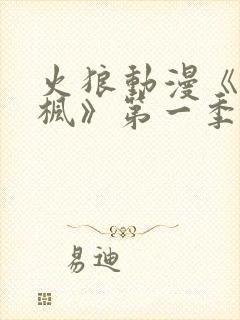 火狼動漫《
楓》第一季
易迪